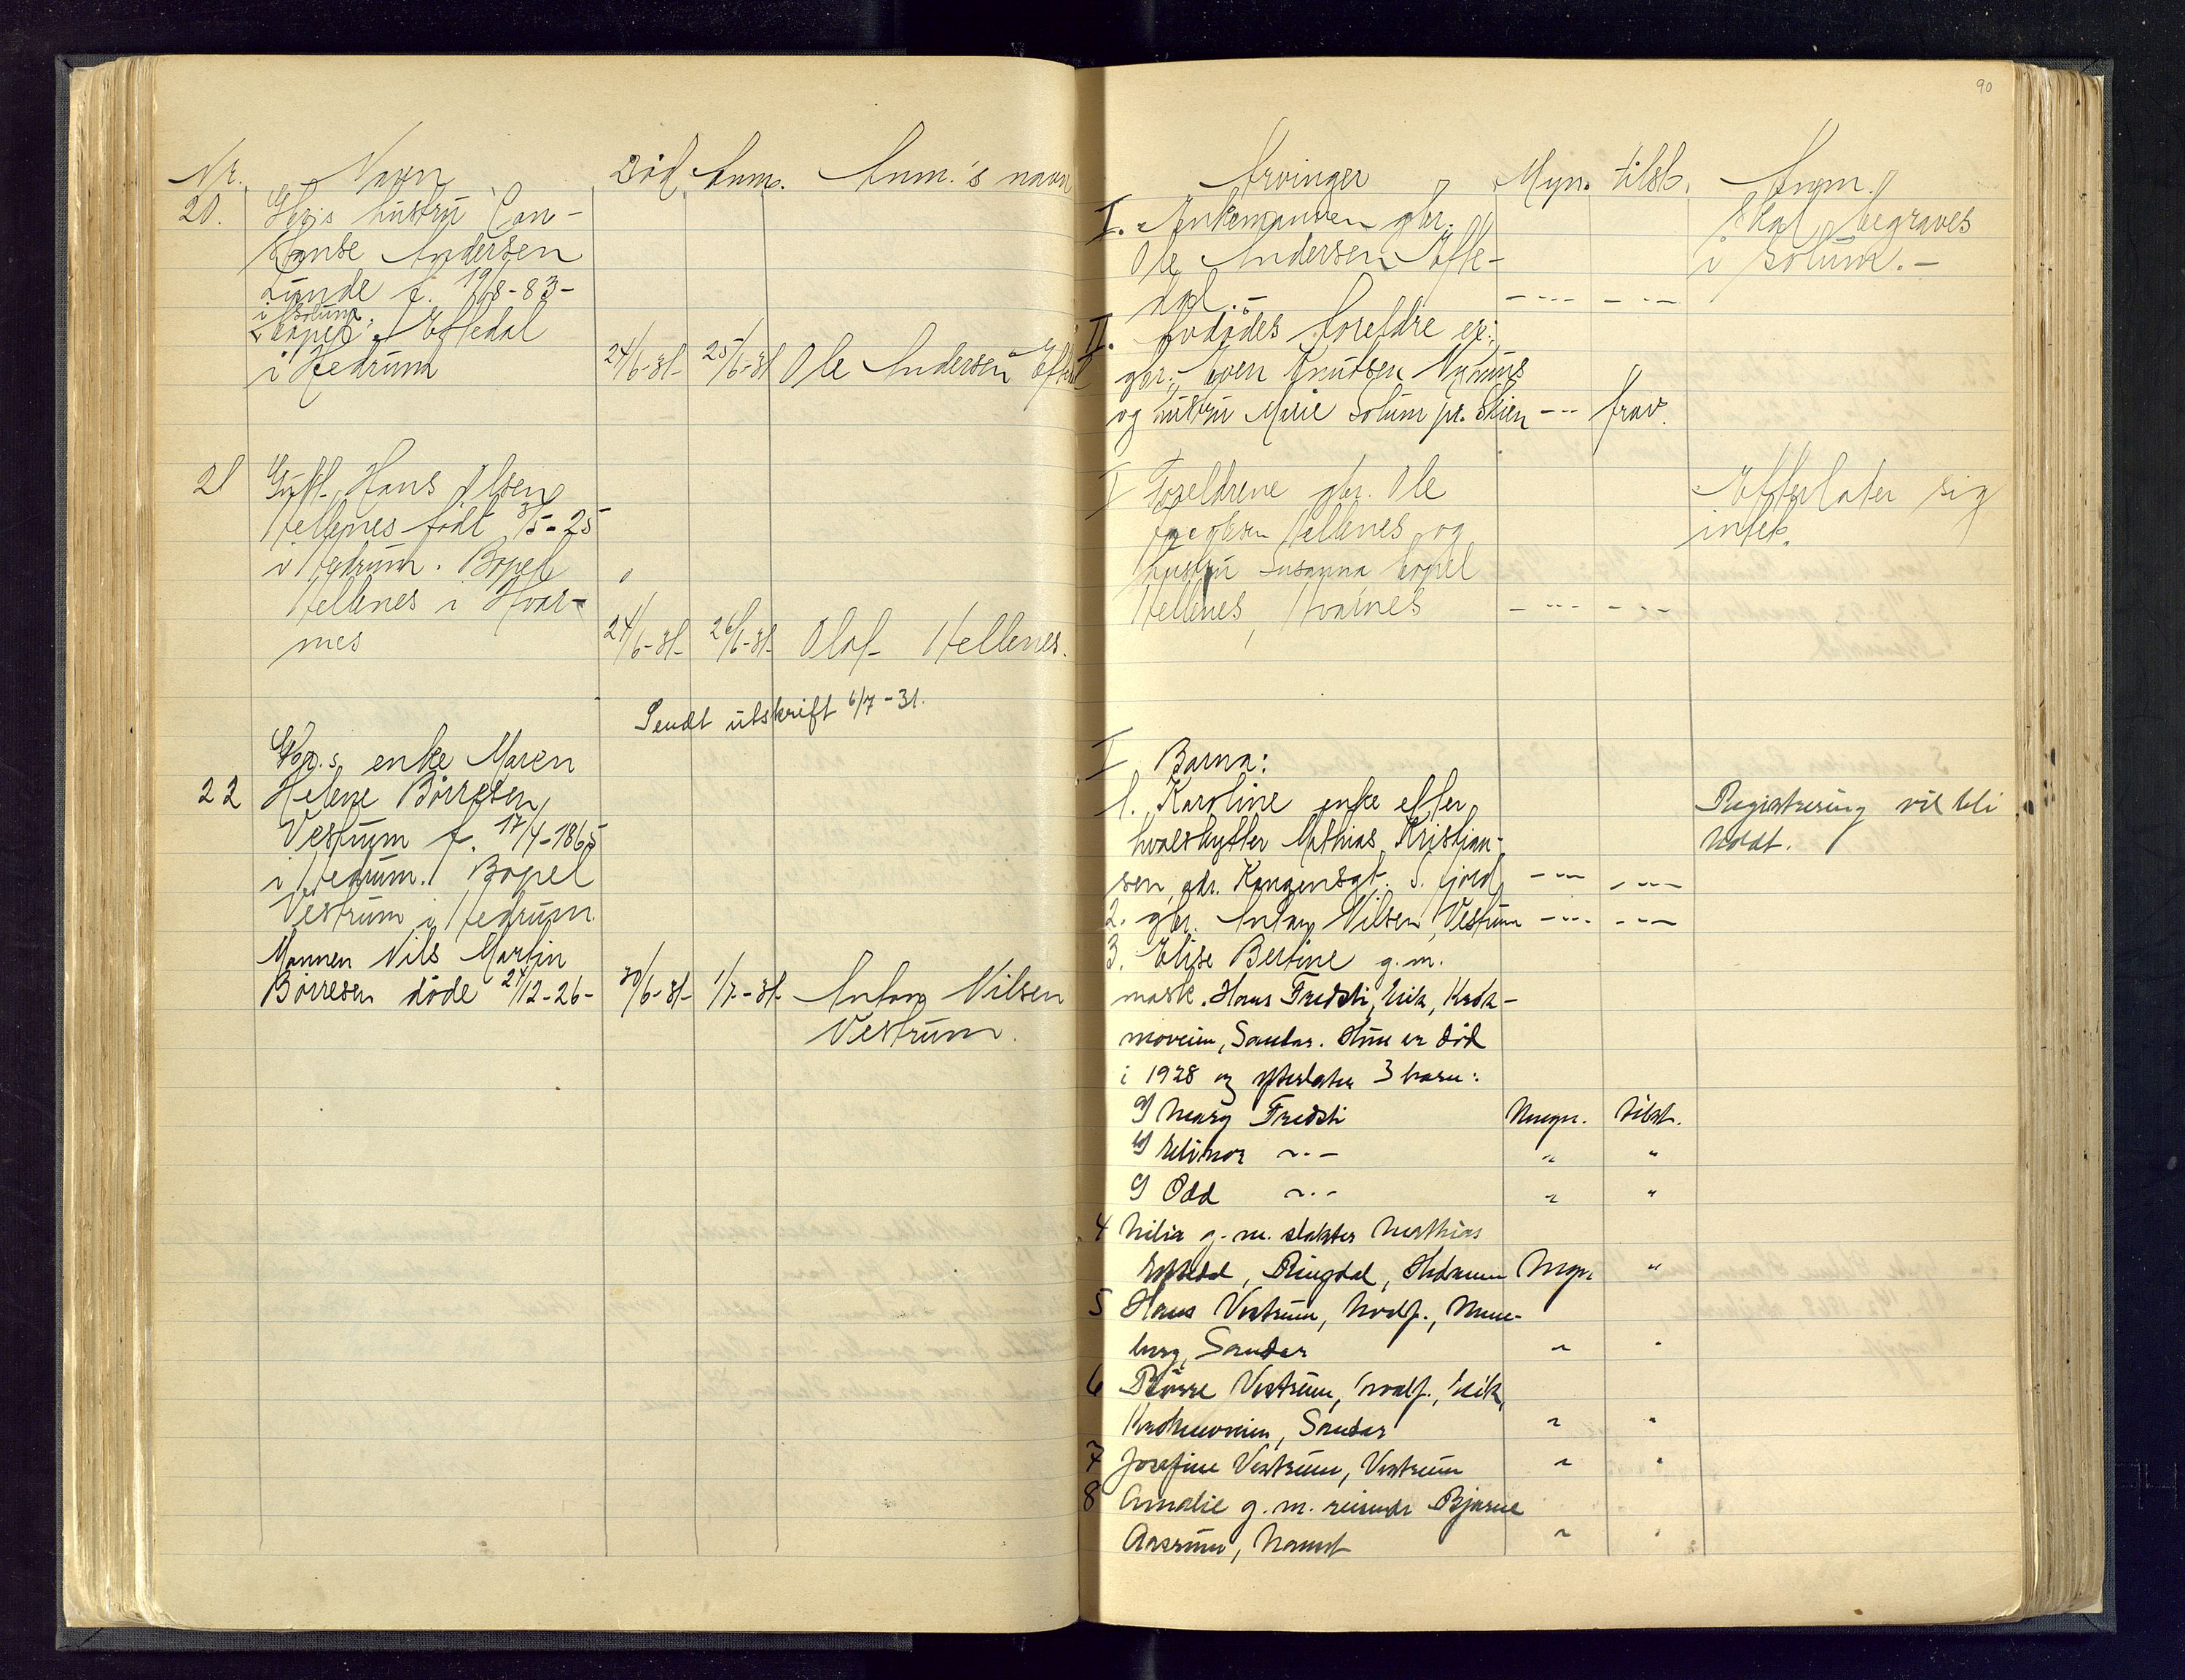 Nr. Navn Död Anm. Anm.'s navn
20. Gbr.s hustru Con-
stanse Andersen
Lunde f. 19/8-83-
i Solum.
Bopel: Eftedal
i Hedrum 24/6-31- 25/6-31 Ole Andersen Eftedal
21 Guft. Hans Olsen
Hellenes født 3/5-25
i Hedrum. Bopel
Hellenes i Hvar-
nes 24/6-31- 26/6-31- Olaf Hellenes.
Sendt utskrift 6/7-31.
Gbr.s enke Maren
22 Helene Börresen
Vestrum f. 17/4-1865
i Hedrum. Bopel
Vestrum i Hedrum.
Mannen Nils Martin
Börresen döde 24/12-26- 30/6-31- 1/7-31- Anton Nilsen
Vestrum.
90
Arvinger Myn. tilst. Anm.
I. Enkemannen gbr. Skal begraves
Ole Andersen Efte- i Solum.-
dal.- - --- - ---
II. Avdödes foreldre er:
gbr. Even Knutsen
og hustru Marie Solum pr. Skien --- frav.
I Foreldrene gbr. Ole Efterlater sig
Hellenes og intet.
hustru Susanna bopel
Hellenes, Hvarnes - --- - ---
I Barna:
1. Karoline enke efter Registrering vil bli
hvalskytter Mathias Kristian- holdt.
sen, adr. Kongensgt. S. fjord - --- - ---
2. gbr. Anton Nilsen, Vestrum - --- - ---
3. Elise Bertine g.m.
mask. Hans Fredsti, Eik, Krok-
moveien, Sandar. Hun er död
i 1928 og efterlater 3 barn:
a) Mary Fredsti Umyn. tilst.
b) Elinor ~.- " "
c) Odd ~.- " "
4 Nilia g.m. slakter Mathias
Eftedal, Ringdal, Hedrum Myn. "
5 Hans Vestrum, hvalf.,
berg, Sandar " "
6 Börre Vestrum, hvalf., Eik,
Krokmoveien, Sandar " "
7 Josefine Vestrum, Vestrum " "
8 Amalie g.m. reisende Bjarne
Aasrum, " "